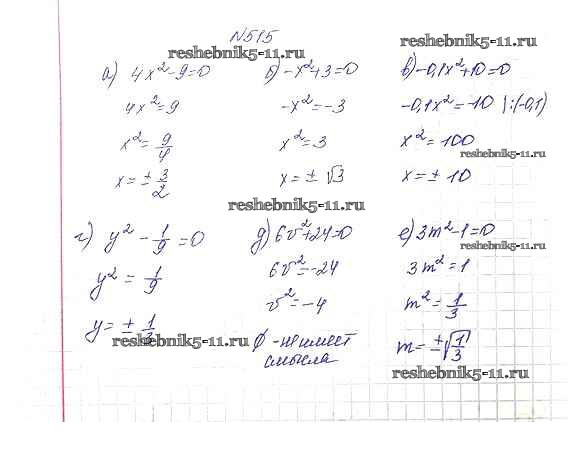 №515
reshebnik5-11.ru
reshebnik5-11.ru
а) 4x²-9=0
4x²=9
x²=9/4
x=±3/2
б) -x²+3=0
-x²=-3
x²=3
x=±√3
в) -0,1x²+10=0
-0,1x²=-10 |:(-0,1)
x²=100
reshebnik5-11.ru
x=±10
reshebnik5-11.ru
г) y²-1/9=0
y²=1/9
y=±1/3
reshebnik5-11.ru
д) 6v²+24=0
6v²=-24
v²=-4
∅ - не имеет
смысла
е) 3m²-1=0
3m²=1
m²=1/3
m=±√1/3
reshebnik5-11.ru